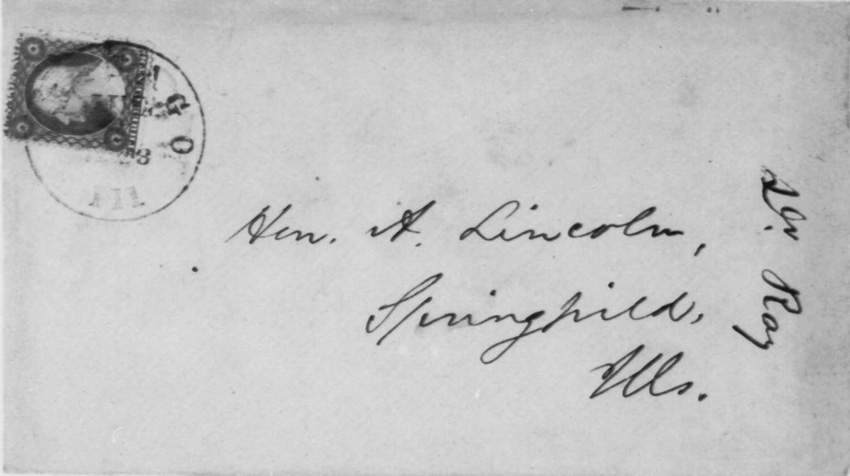 Hon. A. Lincoln,
Springfield,
Ills.
Dr. Ray
GO
3
ILL